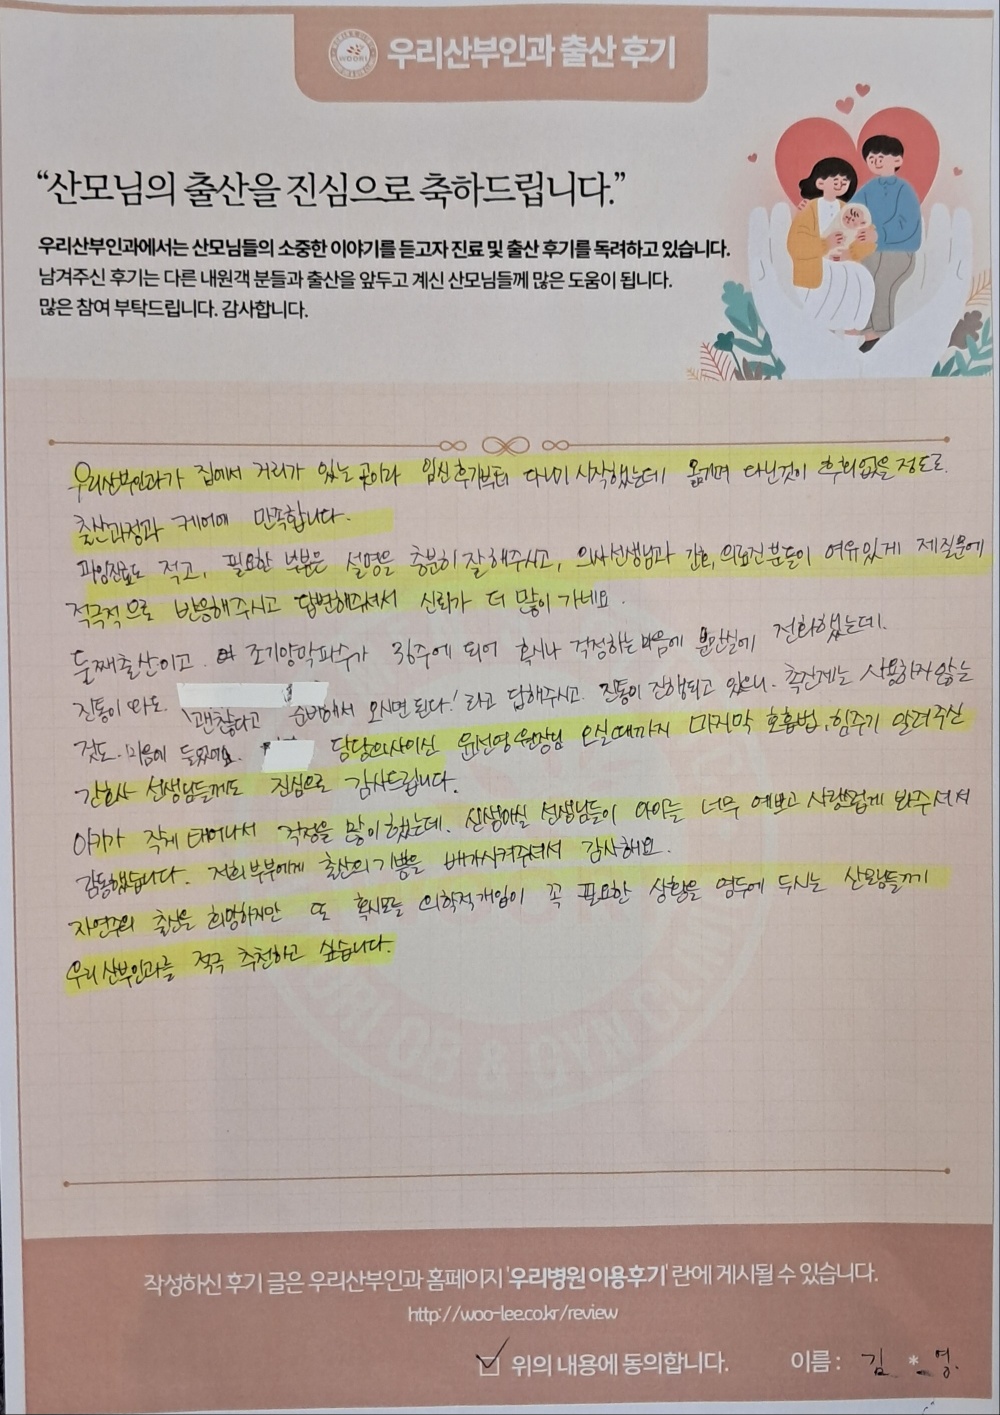 우리산부인과 출산 후기
WOORI
“산모님의 출산을 진심으로 축하드립니다.”
우리산부인과에서는 산모님들의 소중한 이야기를 듣고자 진료 및 출산 후기를 독려하고 있습니다.
남겨주신 후기는 다른 내원객 분들과 출산을 앞두고 계신 산모님들께 많은 도움이 됩니다.
많은 참여 부탁드립니다. 감사합니다.
우리산부인과가 집에서 거리가 있는 곳이라 임신후기부터 다니기 시작했는데 옮기며 다닌것이 후회없을 정도로
출산과정과 케어에 만족합니다.
과잉진료도 적고, 필요한 부분은 설명을 충분히 잘해주시고, 의사선생님과 간호, 의료진분들이 여유있게 제 질문에
적극적으로 반응해주시고 답변해주셔서 신뢰가 더 많이 가네요.
둘째출산이고 조기양막파수가 36주에 되어 혹시나 걱정하는 마음에 분만실에 전화했는데.
진통이 와도. '괜찮다고 준비해서 오시면 된다.' 라고 답해주시고. 진통이 진행되고 있으니. 촉진제는 사용하지 않는
것도 마음에 들었어요. 담당의사이신 윤선영 원장님 오실때까지 마지막 호흡법, 힘주기 알려주신
간호사 선생님들께도 진심으로 감사드립니다.
아기가 작게 태어나서 걱정을 많이 했는데. 신생아실 선생님들이 아이를 너무 예쁘고 사랑스럽게 봐주셔서
감동했습니다. 저희부부에게 출산의 기쁨을 배가시켜주셔서 감사해요.
자연주의 출산을 희망하지만 또 혹시모를 의학적개입이 꼭 필요한 상황을 염두에 두시는 산모님들께
우리산부인과를 적극 추천하고 싶습니다.
작성하신 후기 글은 우리산부인과 홈페이지 '우리병원 이용후기' 란에 게시될 수 있습니다.
http://woo-lee.co.kr/review
위의 내용에 동의합니다. 이름 : 김 * 영.